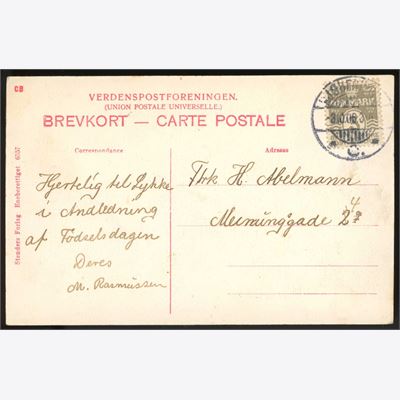 CB
VERDENSPOSTFORENINGEN.
(UNION POSTALE UNIVERSELLE.)
BREVKORT — CARTE POSTALE
Correspondance
Adresse
Hjertelig til Lykke
i Andledning
af Födselsdagen
Deres
M. Rasmussen
Frk H. Abelmann
Meinungsgade 2 4
Stenders Forlag Eneberettiget 6757
DANMARK